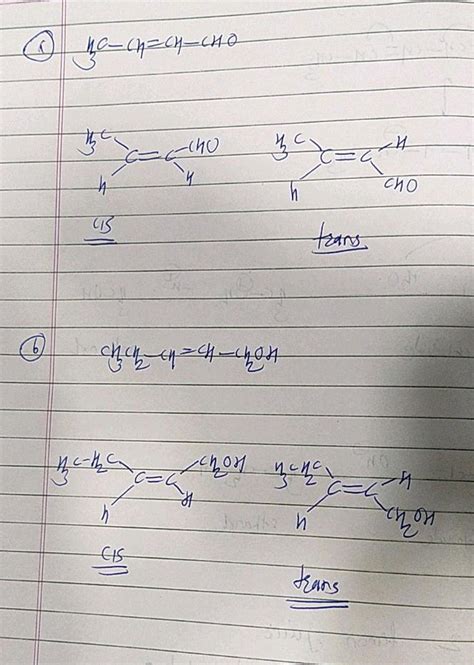 5 H3C-CH=CH-CHO
H3C CHO
C=C
H H
cis
H3C H
C=C
H CHO
trans
6 CH3CH2-CH=CH-CH2OH
H3C-H2C CH2OH
C=C
H H
cis
H3C-H2C H
C=C
H CH2OH
trans